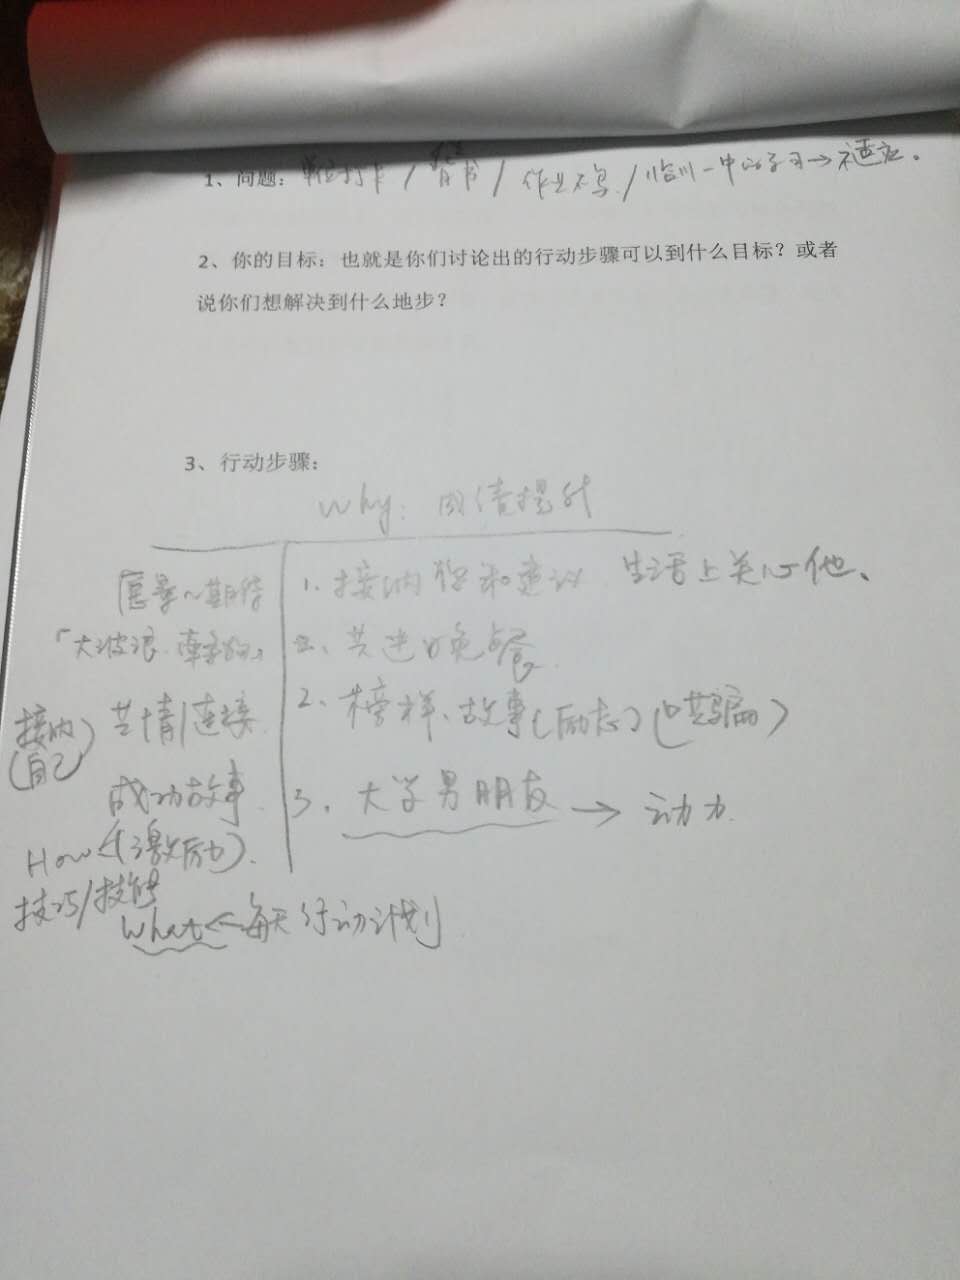 1、问题：单位打卡 / 背书 / 作业不写 / 临川一中的学习→不适应。
2、你的目标：也就是你们讨论出的行动步骤可以到什么目标？或者
说你们想解决到什么地步？
3、行动步骤：
Why: 提升
愿景~期待
1. 接纳 和建议 生活上关心他、
「大波浪
2、共进晚餐
接纳(自己) 共情/连接
2、榜样、故事(励志)(哄骗)
成功故事
3、大学男朋友 → 动力
How←(激励)
技巧/技能
What←每天行动计划